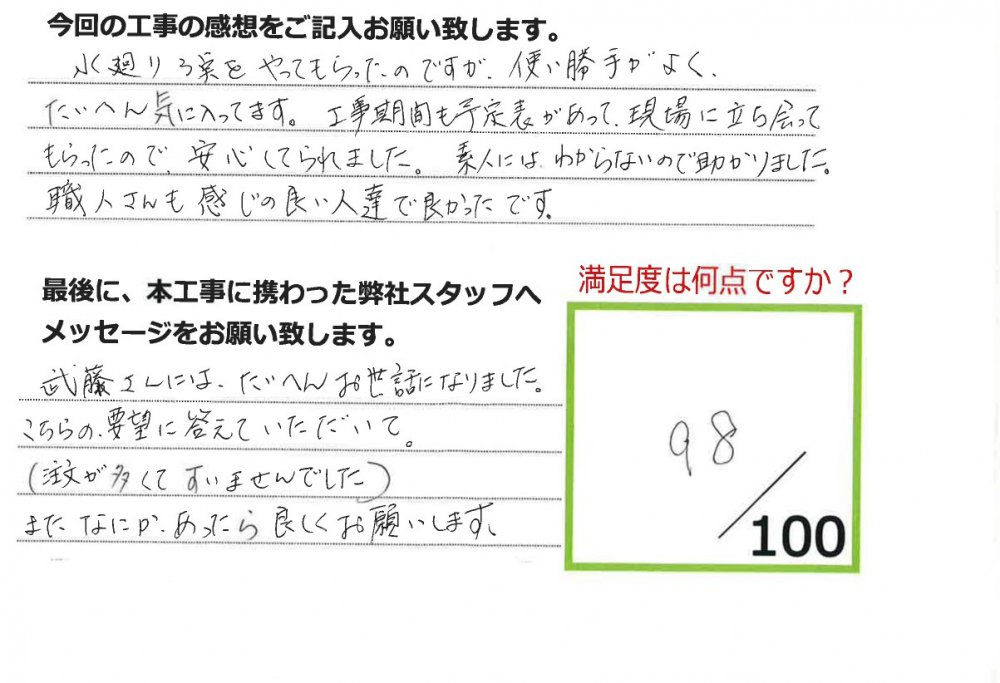 今回の工事の感想をご記入お願い致します。
水廻り3案をやってもらったのですが、使い勝手がよく、
たいへん気に入ってます。工事期間も予定表があって、現場に立ち会って
もらったので、安心してられました。素人にはわからないので助かりました。
職人さんも感じの良い人達で良かったです。
最後に、本工事に携わった弊社スタッフへ
メッセージをお願い致します。
武藤さんには、たいへんお世話になりました。
こちらの、要望に答えていただいて。
(注文が多くてすいませんでした)
またなにか、あったら良しくお願いします。
満足度は何点ですか?
98
/100